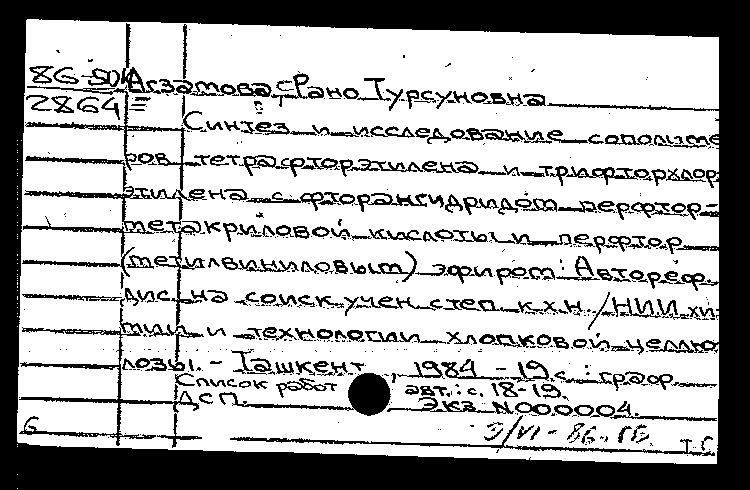 86-50А Агзамова, Рано Турсуновна
2864
Синтез и исследование сополиме
ров тетрафторэтилена и трифторхлор
этилена с фторангидридом перфтор-
метакриловой кислоты и перфтор
(метилвиниловым) эфиром: Автореф.
дис. на соиск. учен. степ. к.х.н. / НИИ хи-
мии и технологии хлопковой целлю
лозы. - Ташкент, 1984 - 19 с.: граф.
Список работ авт.: с. 18-19.
ДСП. Экз. N 000004.
Б 3/VI - 86. ГБ. Т.С